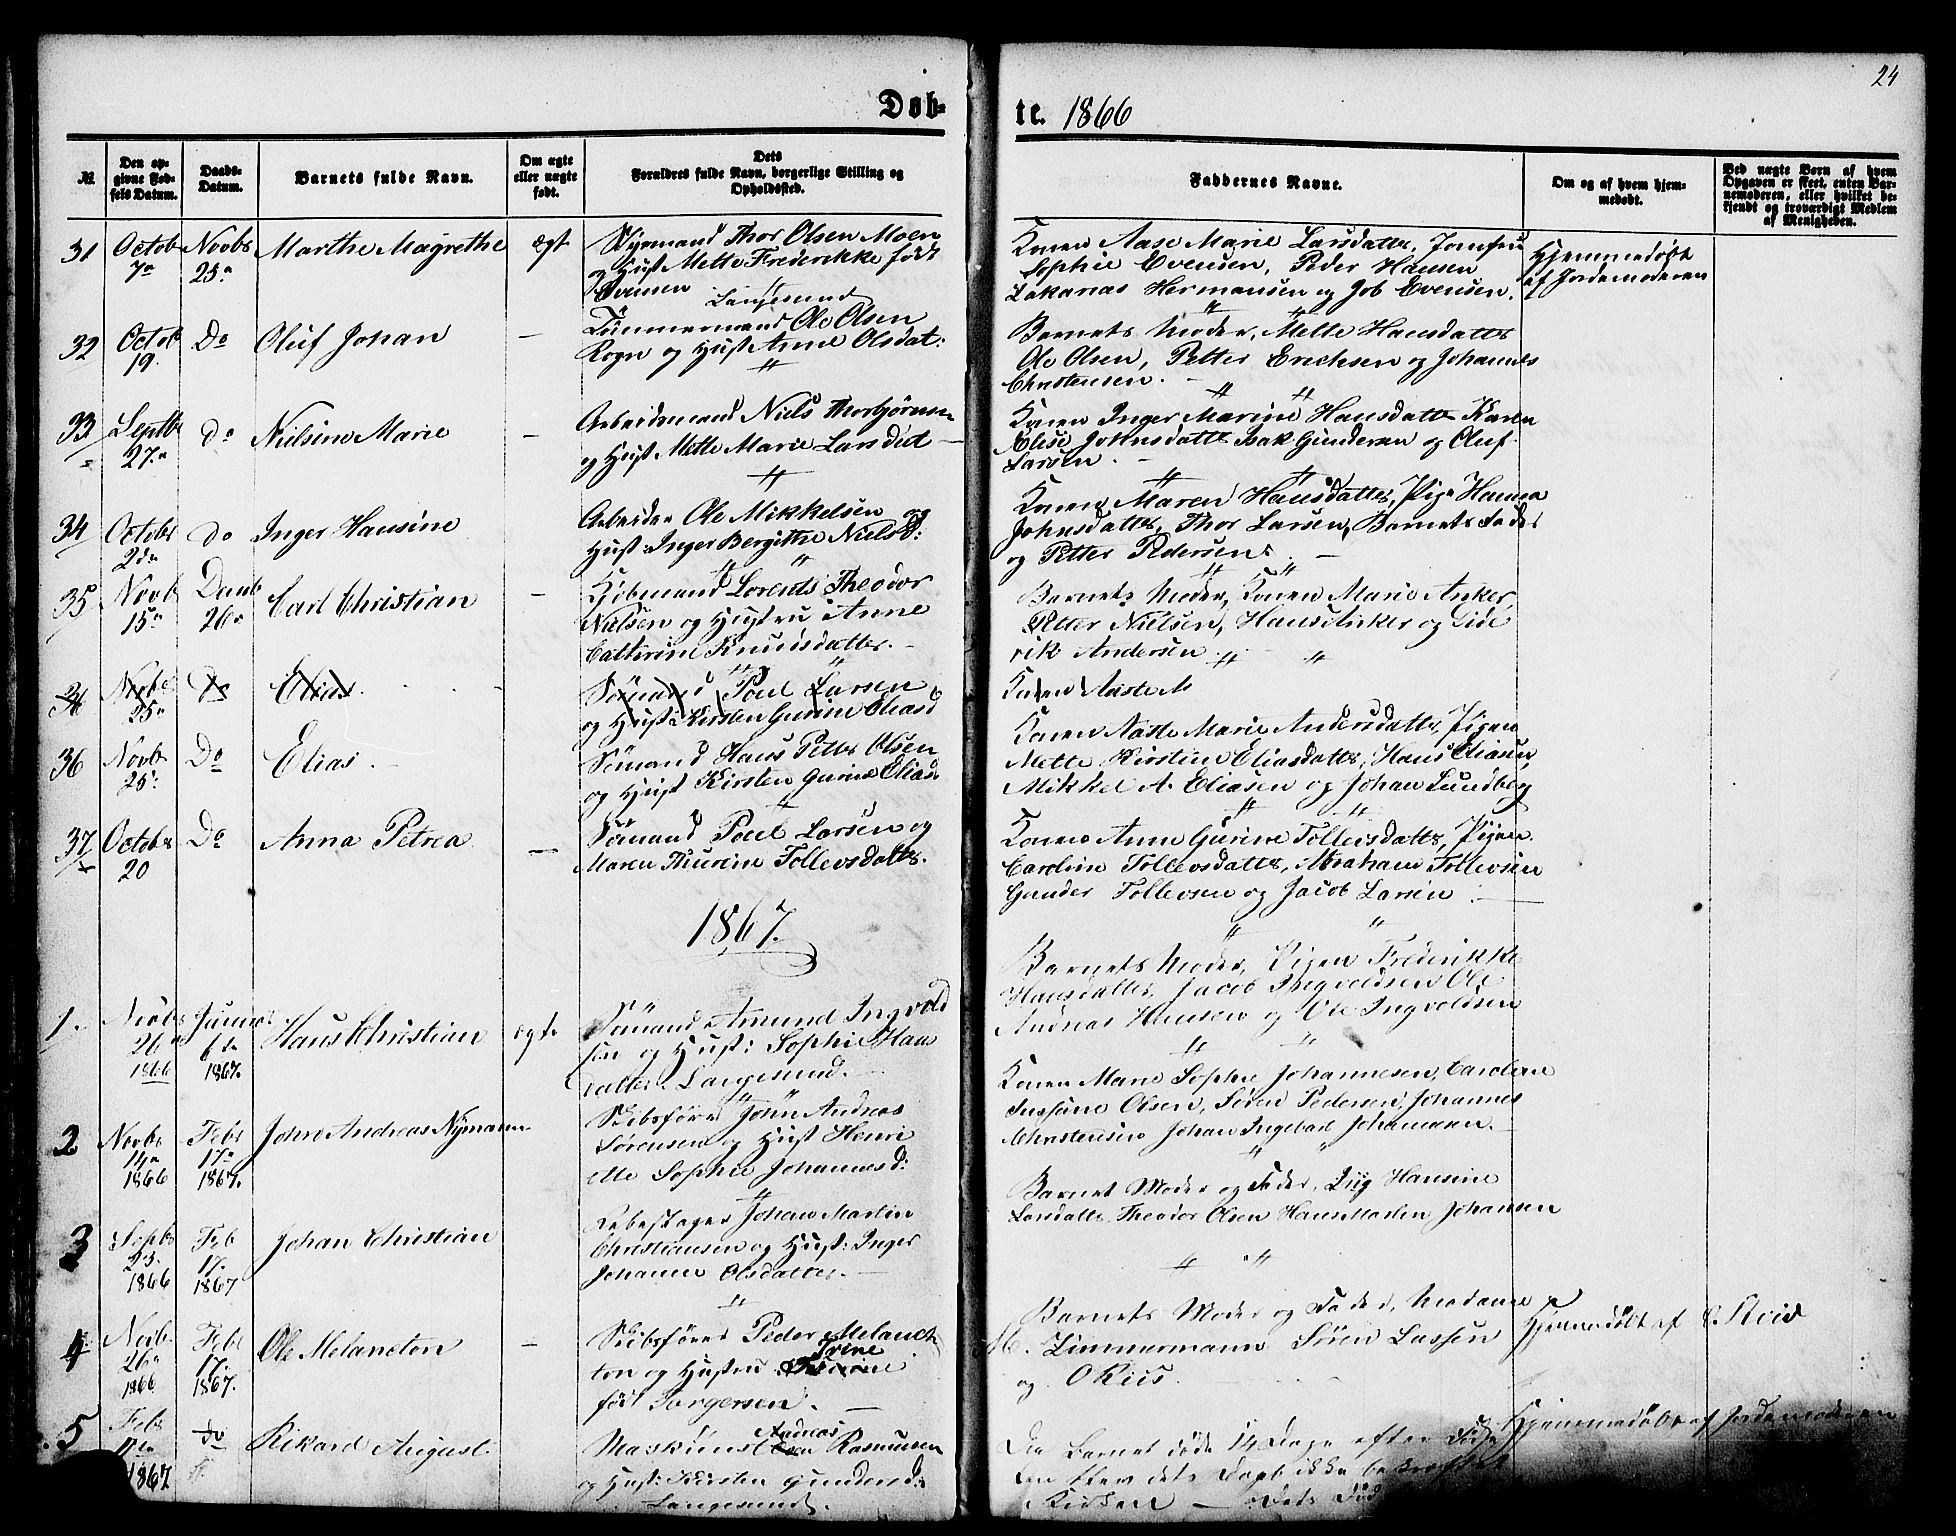 24
Døb-
te. 1866
№
Den op-
givne Fød-
sels Datum.
Daabs-
Datum.
Barnets fulde Navn.
Om ægte
eller uægte
født.
Dets
Forældres fulde Navn, borgerlige Stilling og
Opholdssted.
Faddernes Navne.
Om og af hvem hjem-
medøbt.
Ved uægte Børn af hvem
Opgaven er skeet, enten Bar-
nemoderen, eller hvilket be-
kjendt og troværdigt Medlem
af Menigheden.
31
Octob
7de
Novbr
25de
Marthe Magrethe
ægt
Styrmand Thor Olsen Moen
og Hust Mette Frederikke født
Evensen
Langesund
Konen Aase Marie Larsdatter, Jomfru
Sophie Evensen, Peder Hansen
Zakarias Hermansen og Job Evensen.
Hjemmedøbt
af Jordemoderen
32
Octob
19.
Do
Oluf Johan
—
Tømmermand Ole Olsen
Rogn og Hust Anne Olsdat:
Barnets Moder, Mette Hansdatter
Ole Olsen, Petter Erichsen og Johannes
Christensen. —
33
Septbr
27de
do
Nielsine Marie
—
Arbeidsmand Niels Thorbjørnsen
og Hust. Mette Marie Larsdat —
Konen Inger Marine Hansdatter Karen
Elise Johnsdatter Isak Gundersen og Oluf
Larsen. —
34
Octobr
2de
do
Inger Hansine
Arbeider Ole Mikkelsen og
Hust: Inger Bergithe Nielsd:
Konen Maren Hansdatter, Pige Hanna
Johnsdatter, Thor Larsen, Barnets Fader
og Petter Pedersen. —
35
Novb
15de
Decmb
26de
Carl Christian
—
Kjøbmand Lorents Theodor
Nielsen og Hustru Anne
Catherine Knudsdatter. —
Barnets Moder, Konen Marie Anker,
Petter Nielsen, Hans Anker og Dide
rik Andersen
36
Novbr
25de
Do
Elias
Sømand Poul Larsen
og Hust: Kirsten Gurine Eliasd
Konen Aaste M
36
Novbr
25.
Do
Elias. —
Sømand Hans Petter Olsen
og Hust Kirsten Gurine Eliasd
Konen Aaste Marie Andersdatter, Pigen
Mette Kirstine Eliasdatter, Hans Eliasen,
Mikkel A. Eliasen og Johan Lundberg
37
Octobr
20
Do
Anna Petrea
—
Sømand Poul Larsen og
Maren Thurine Tollevsdatter.
Konen Anne Gurine Tollevsdatter, Pigen
Caroline Tollevsdatter, Abraham Tollevsen
Gunder Tollevsen og Jacob Larsen. —
1867.
1.
Novbr
20de
1866
Januar
6te
1867.
Hans Christian
ægte
Sømand Amund Ingvold
sen og Hust: Sophie Hans
datter. Langesund. —
Barnets Moder, Pigen Frederikke
Hansdatter, Jacob Ingvoldsen Ole
Andreas Hansen og Ole Ingvoldsen
2
Novbr
14de
1866
Febr
17de
1867.
John Andreas Nymann
Skibsfører John Andreas
Sørensen og Hust Henri
ette Sophie Johannesd:
Konen Marie Sophie Johannesen, Caroline
Olsen, Søren Pedersen, Johannes
Christensen Johan Johannesen. —
3
Sepbr
23.
1866
Feb
17.
1867
Johan Christian
Johan Martin
Christiansen og Hust: Inger
Johanne Olsdatter. —
Barnets Moder og Fader, Pig Hansine
Larsdatter, Theodor Olsen Hans Martin Johansen
4
Novb.
26de
1866
Febr
17.
1867.
Ole Melancton
—
Skibsfører Peder Melanch
ton og Hustru Trine
født Jørgensen. —
Barnets Moder og Fader, Madame
M. Zimmermann Søren Lassen
og O Riis.
Hjemmedøbt af O. Riis
5
Febr
11te
1867
do
Rikard August
Maskinist Andreas Rasmusen
og Hust: Kirsten Gundersd:
Langesund.
Da Barnet døde 14 Dage efter Føds
len blev dets Daab ikke bekræftet i
Kirken —
Hjemmedøbt af Jordemoderen